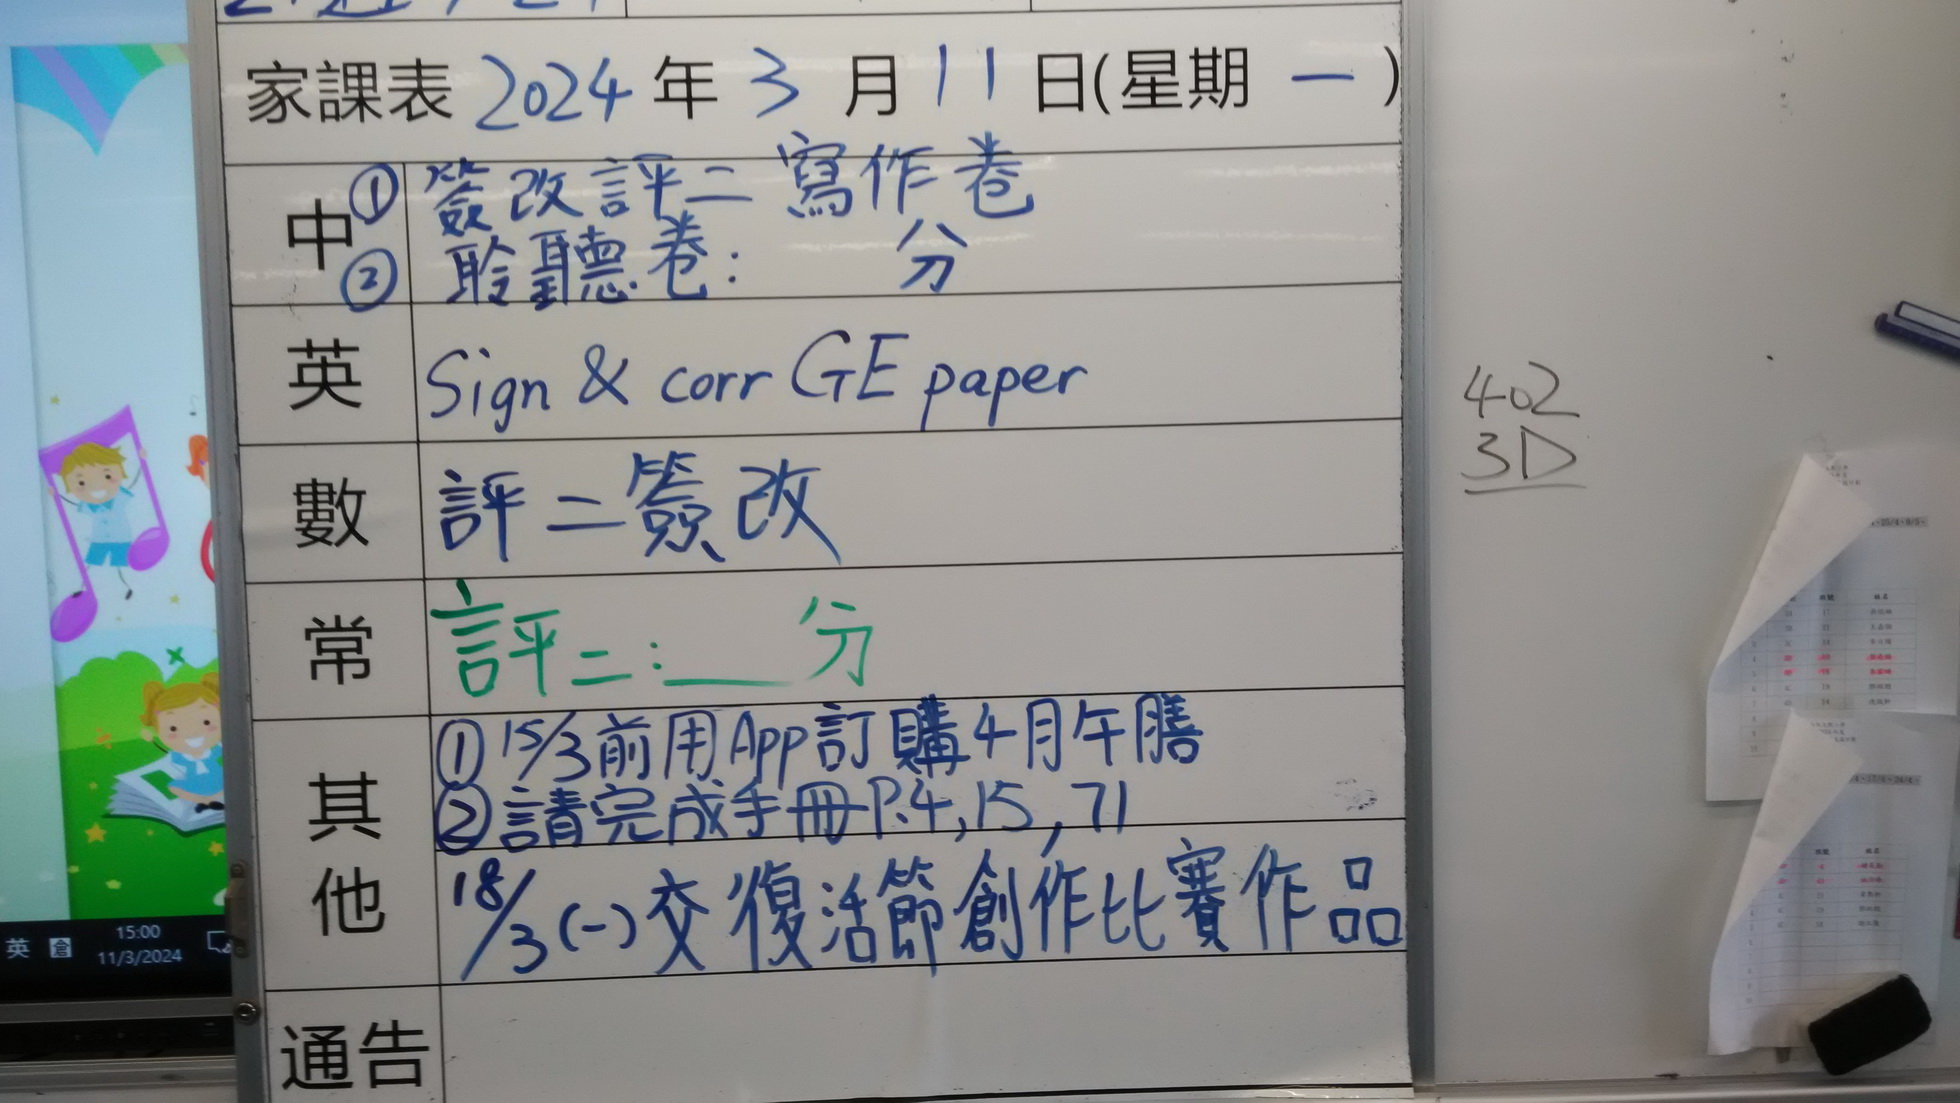 家課表 2024 年 3 月 11 日(星期 一 )
中 ① 簽改評二 寫作卷
② 聆聽卷: 分
英 Sign & corr GE paper
數 評二簽改
常 評二:__分
其他 ① 15/3前用App訂購4月午膳
② 請完成手冊P.4,15,71
18/3(一)交復活節創作比賽作品
通告
402
3D
英 倉 15:00
11/3/2024